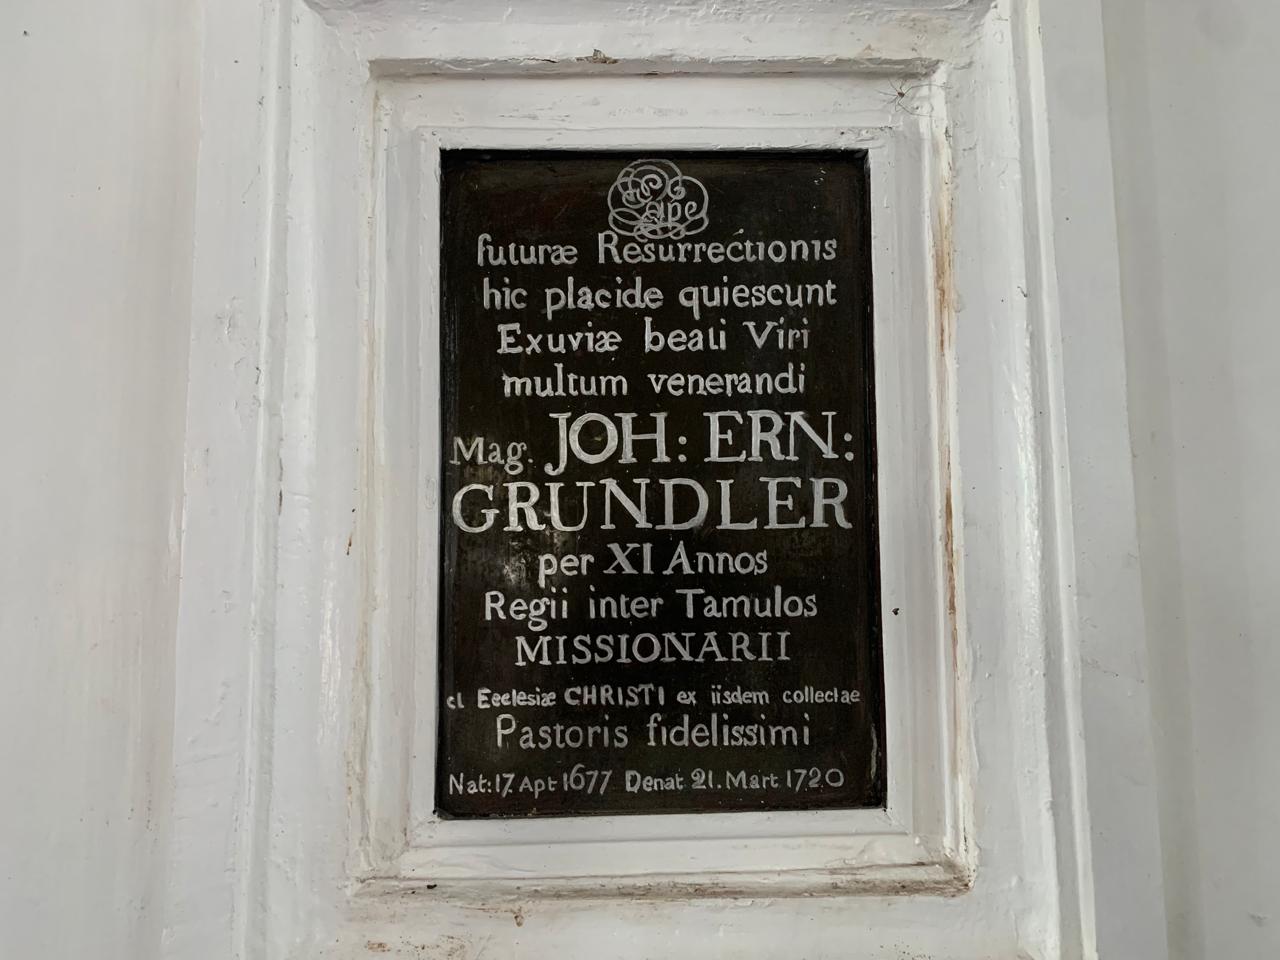 Spe
futuræ Resurrectionis
hic placide quiescunt
Exuviæ beati Viri
multum venerandi
Mag. JOH: ERN:
GRUNDLER
per XI Annos
Regii inter Tamulos
MISSIONARII
et Ecclesiæ CHRISTI ex iisdem collectae
Pastoris fidelissimi
Nat: 17. Apt 1677 Denat 21. Mart 1720